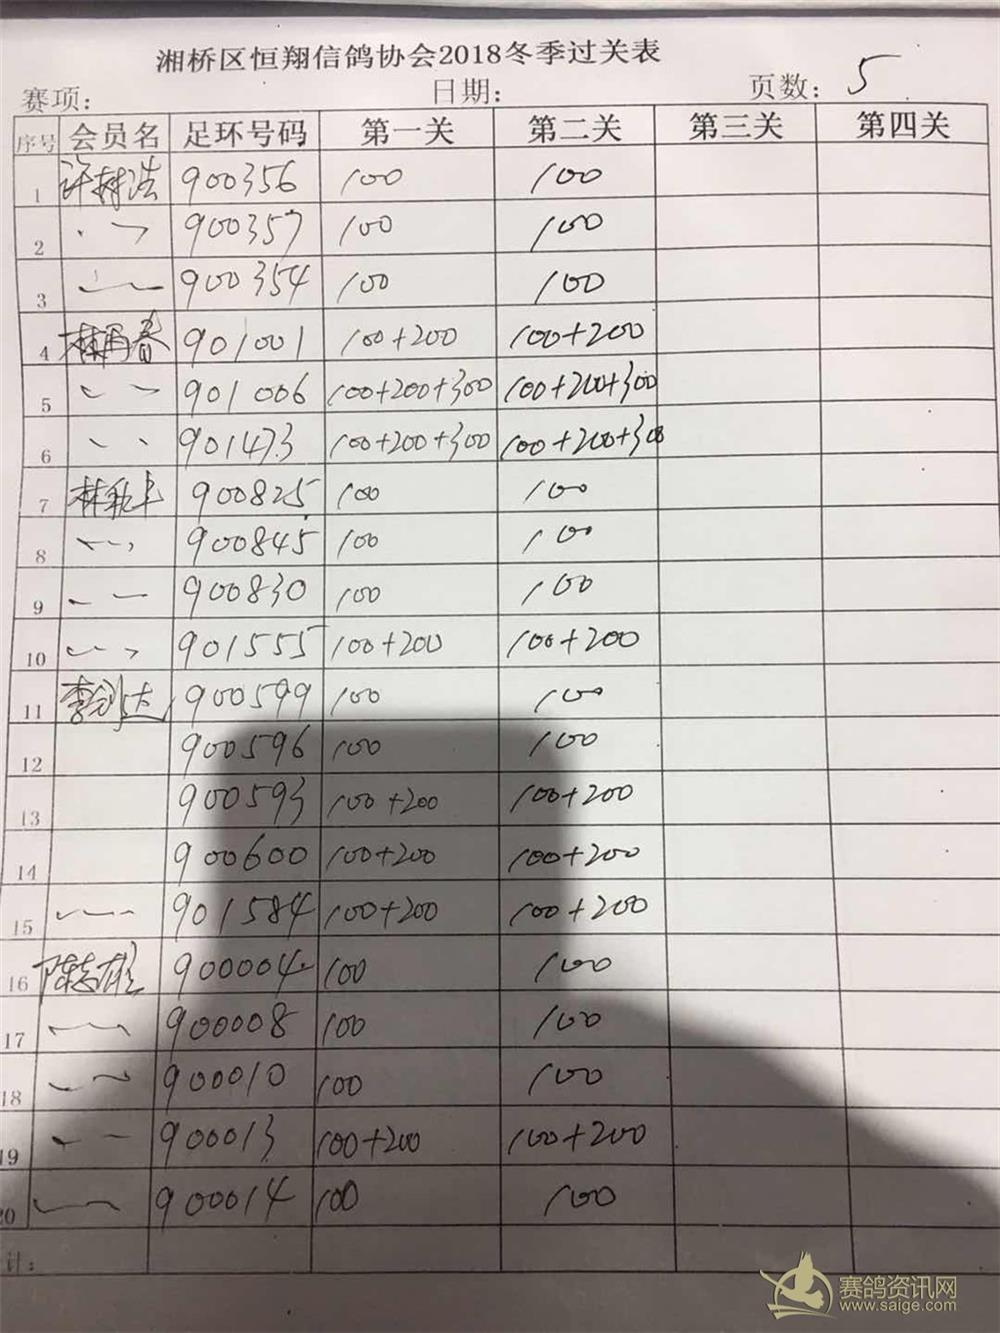 湘桥区恒翔信鸽协会2018冬季过关表
赛项: 日期: 页数: 5
序号 会员名 足环号码 第一关 第二关 第三关 第四关
1 许树浩 900356 100 100
2 900357 100 100
3 900354 100 100
4 林再春 901001 100+200 100+200
5 901006 100+200+300 100+200+300
6 901473 100+200+300 100+200+300
7 900825 100 100
8 900845 100 100
9 900830 100 100
10 901555 100+200 100+200
11 900599 100 100
12 900596 100 100
13 900593 100+200 100+200
14 900600 100+200 100+200
15 901584 100+200 100+200
16 陈志雄 900004 100 100
17 900008 100 100
18 900010 100 100
19 900013 100+200 100+200
20 900014 100 100
计:
赛鸽资讯网
www.saige.com